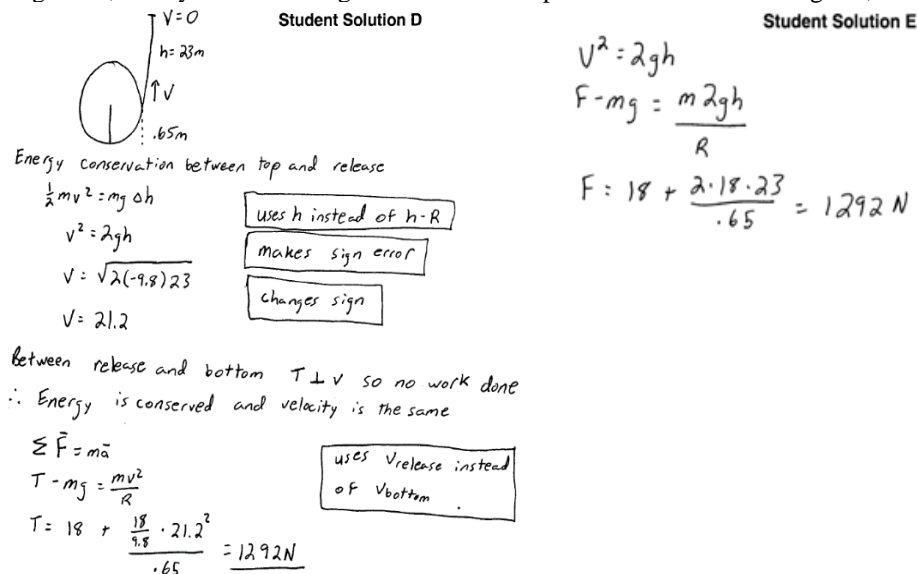 Student Solution D
V=0
h=23m
↑V
.65m
Energy conservation between top and release
½mv²=mg Δh
v²=2gh
V=√2(-9.8)23
V=21.2
uses h instead of h-R
makes sign error
changes sign
Between release and bottom T⊥V so no work done
∴ Energy is conserved and velocity is the same
ΣF̄=mā
T-mg=mv²/R
T= 18 + 18/9.8 · 21.2² / .65 = 1292N
uses Vrelease instead
of Vbottom
Student Solution E
V²=2gh
F-mg = m2gh/R
F= 18 + 2·18·23/.65 = 1292 N